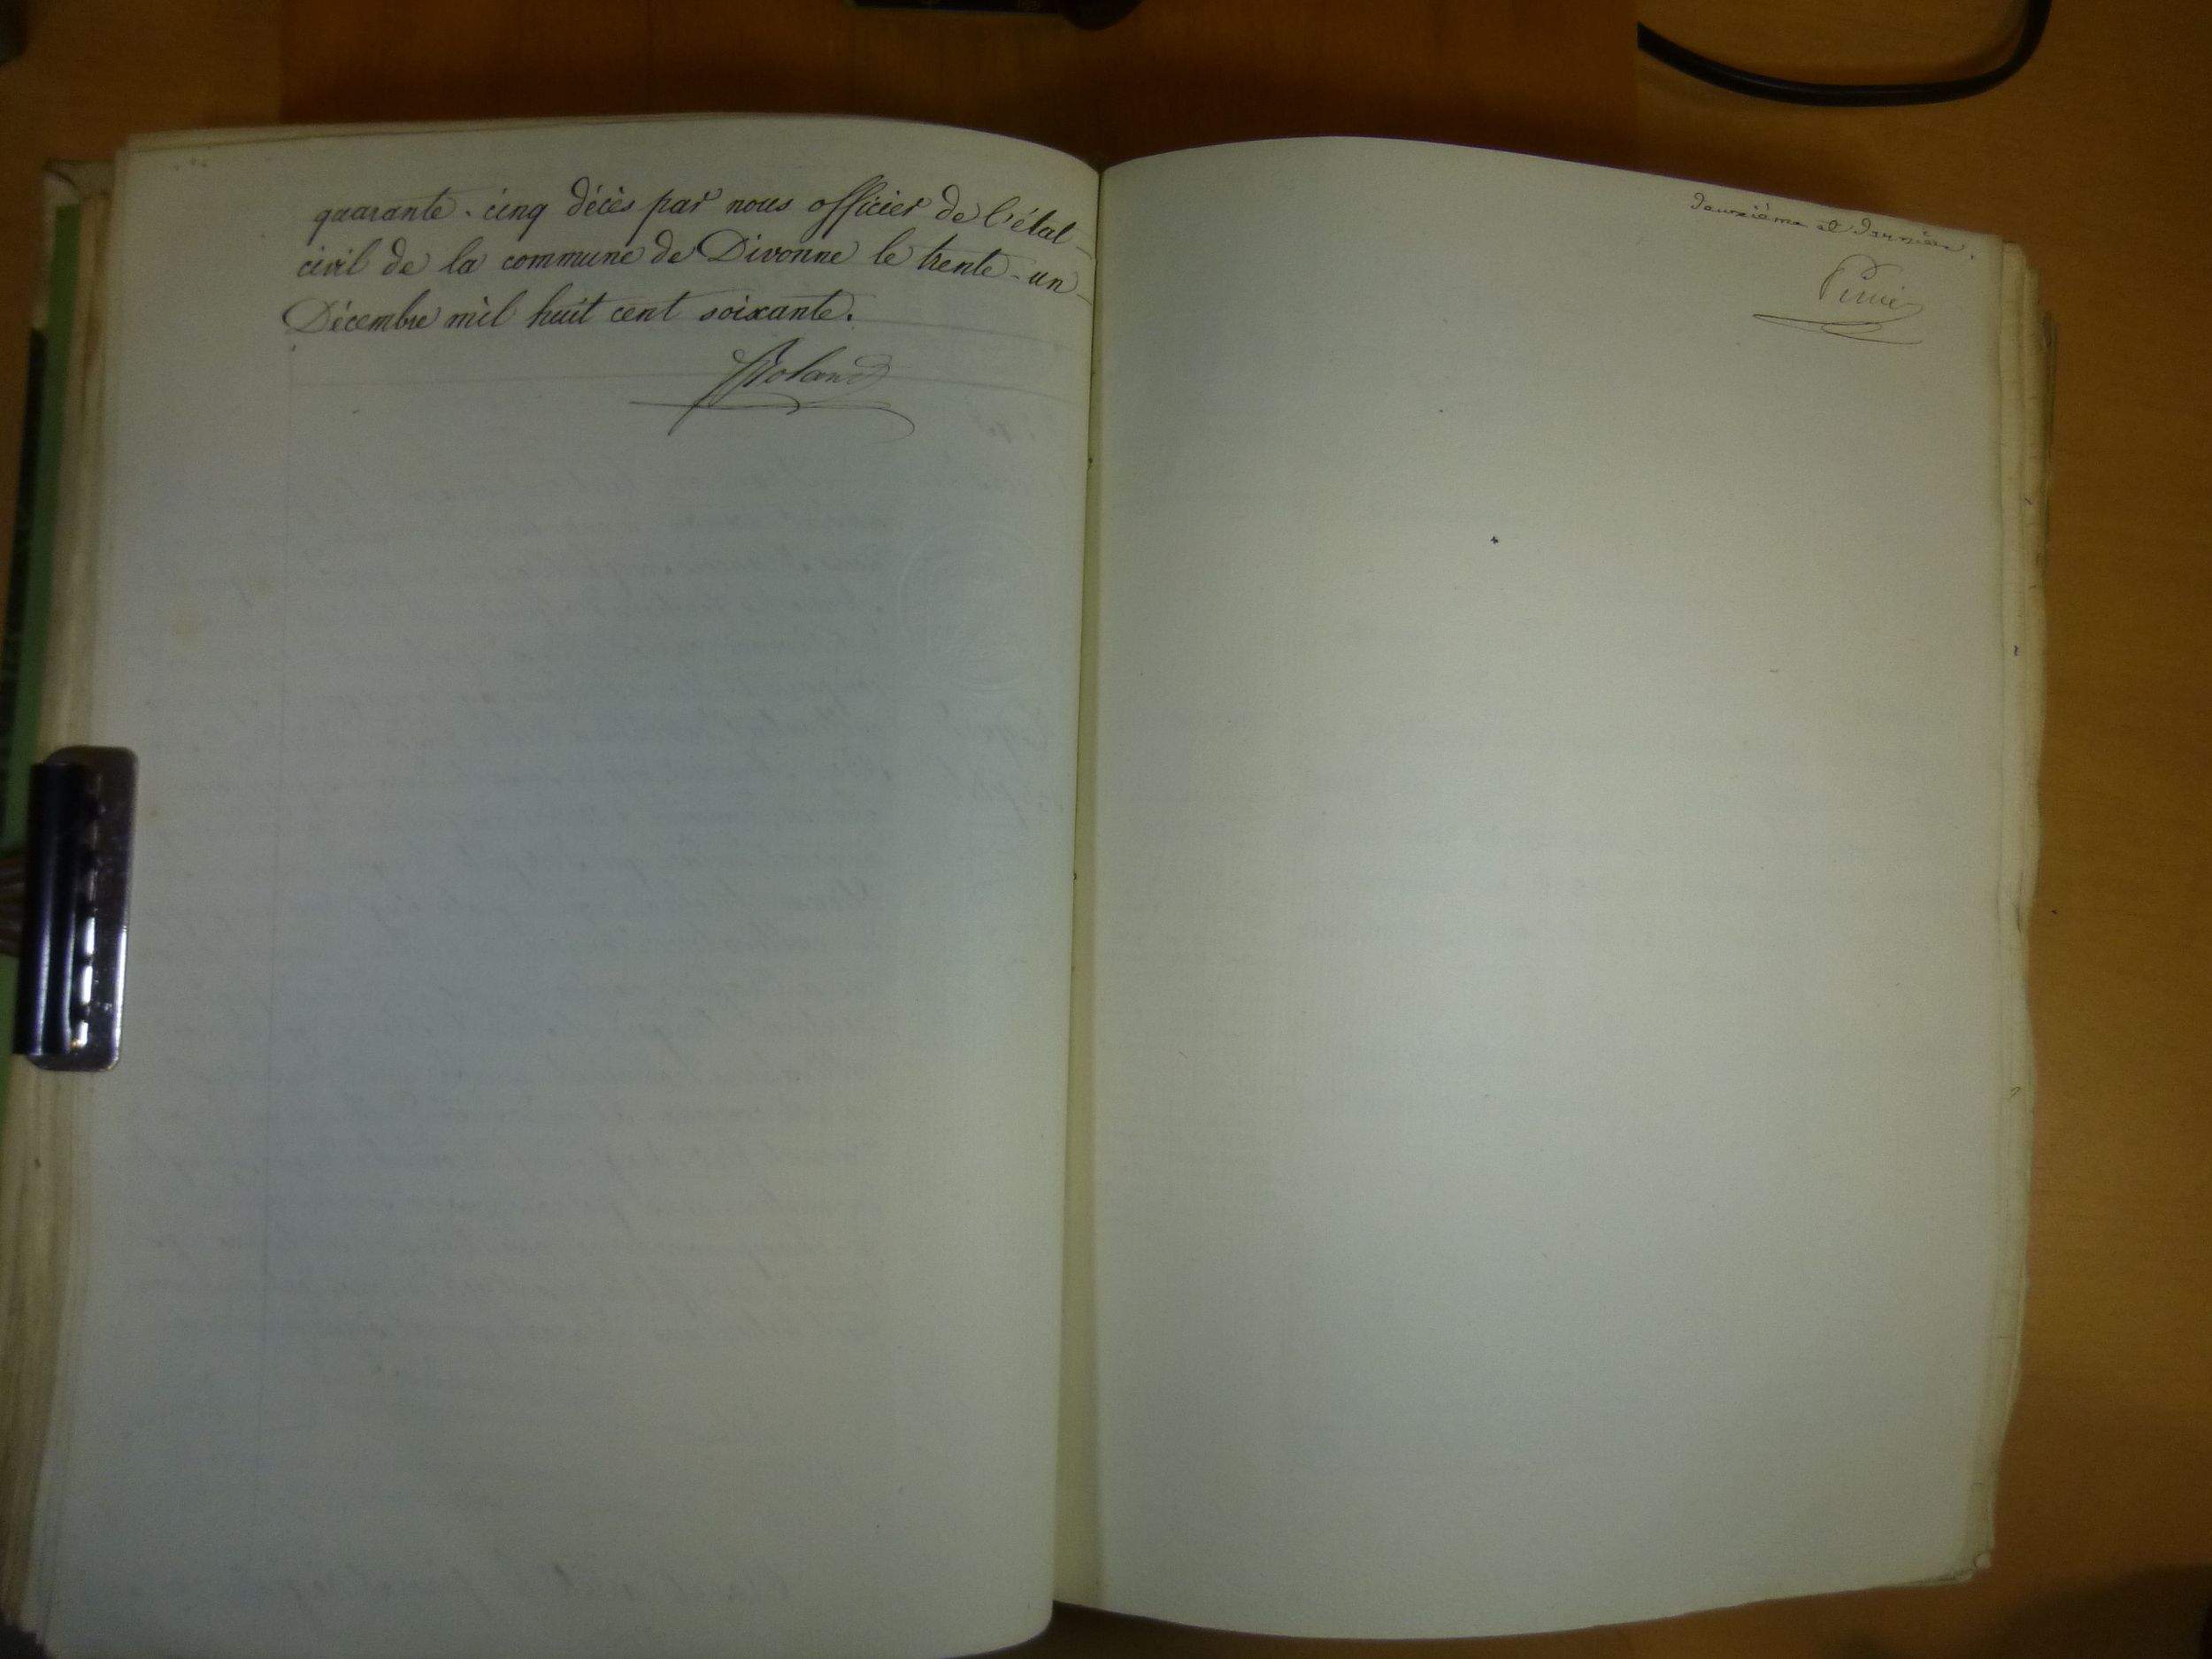 quarante-cinq décès par nous officier de l'état
civil de la commune de Divonne le trente-un
Décembre mil huit cent soixante.
Roland
Douzième et dernier.